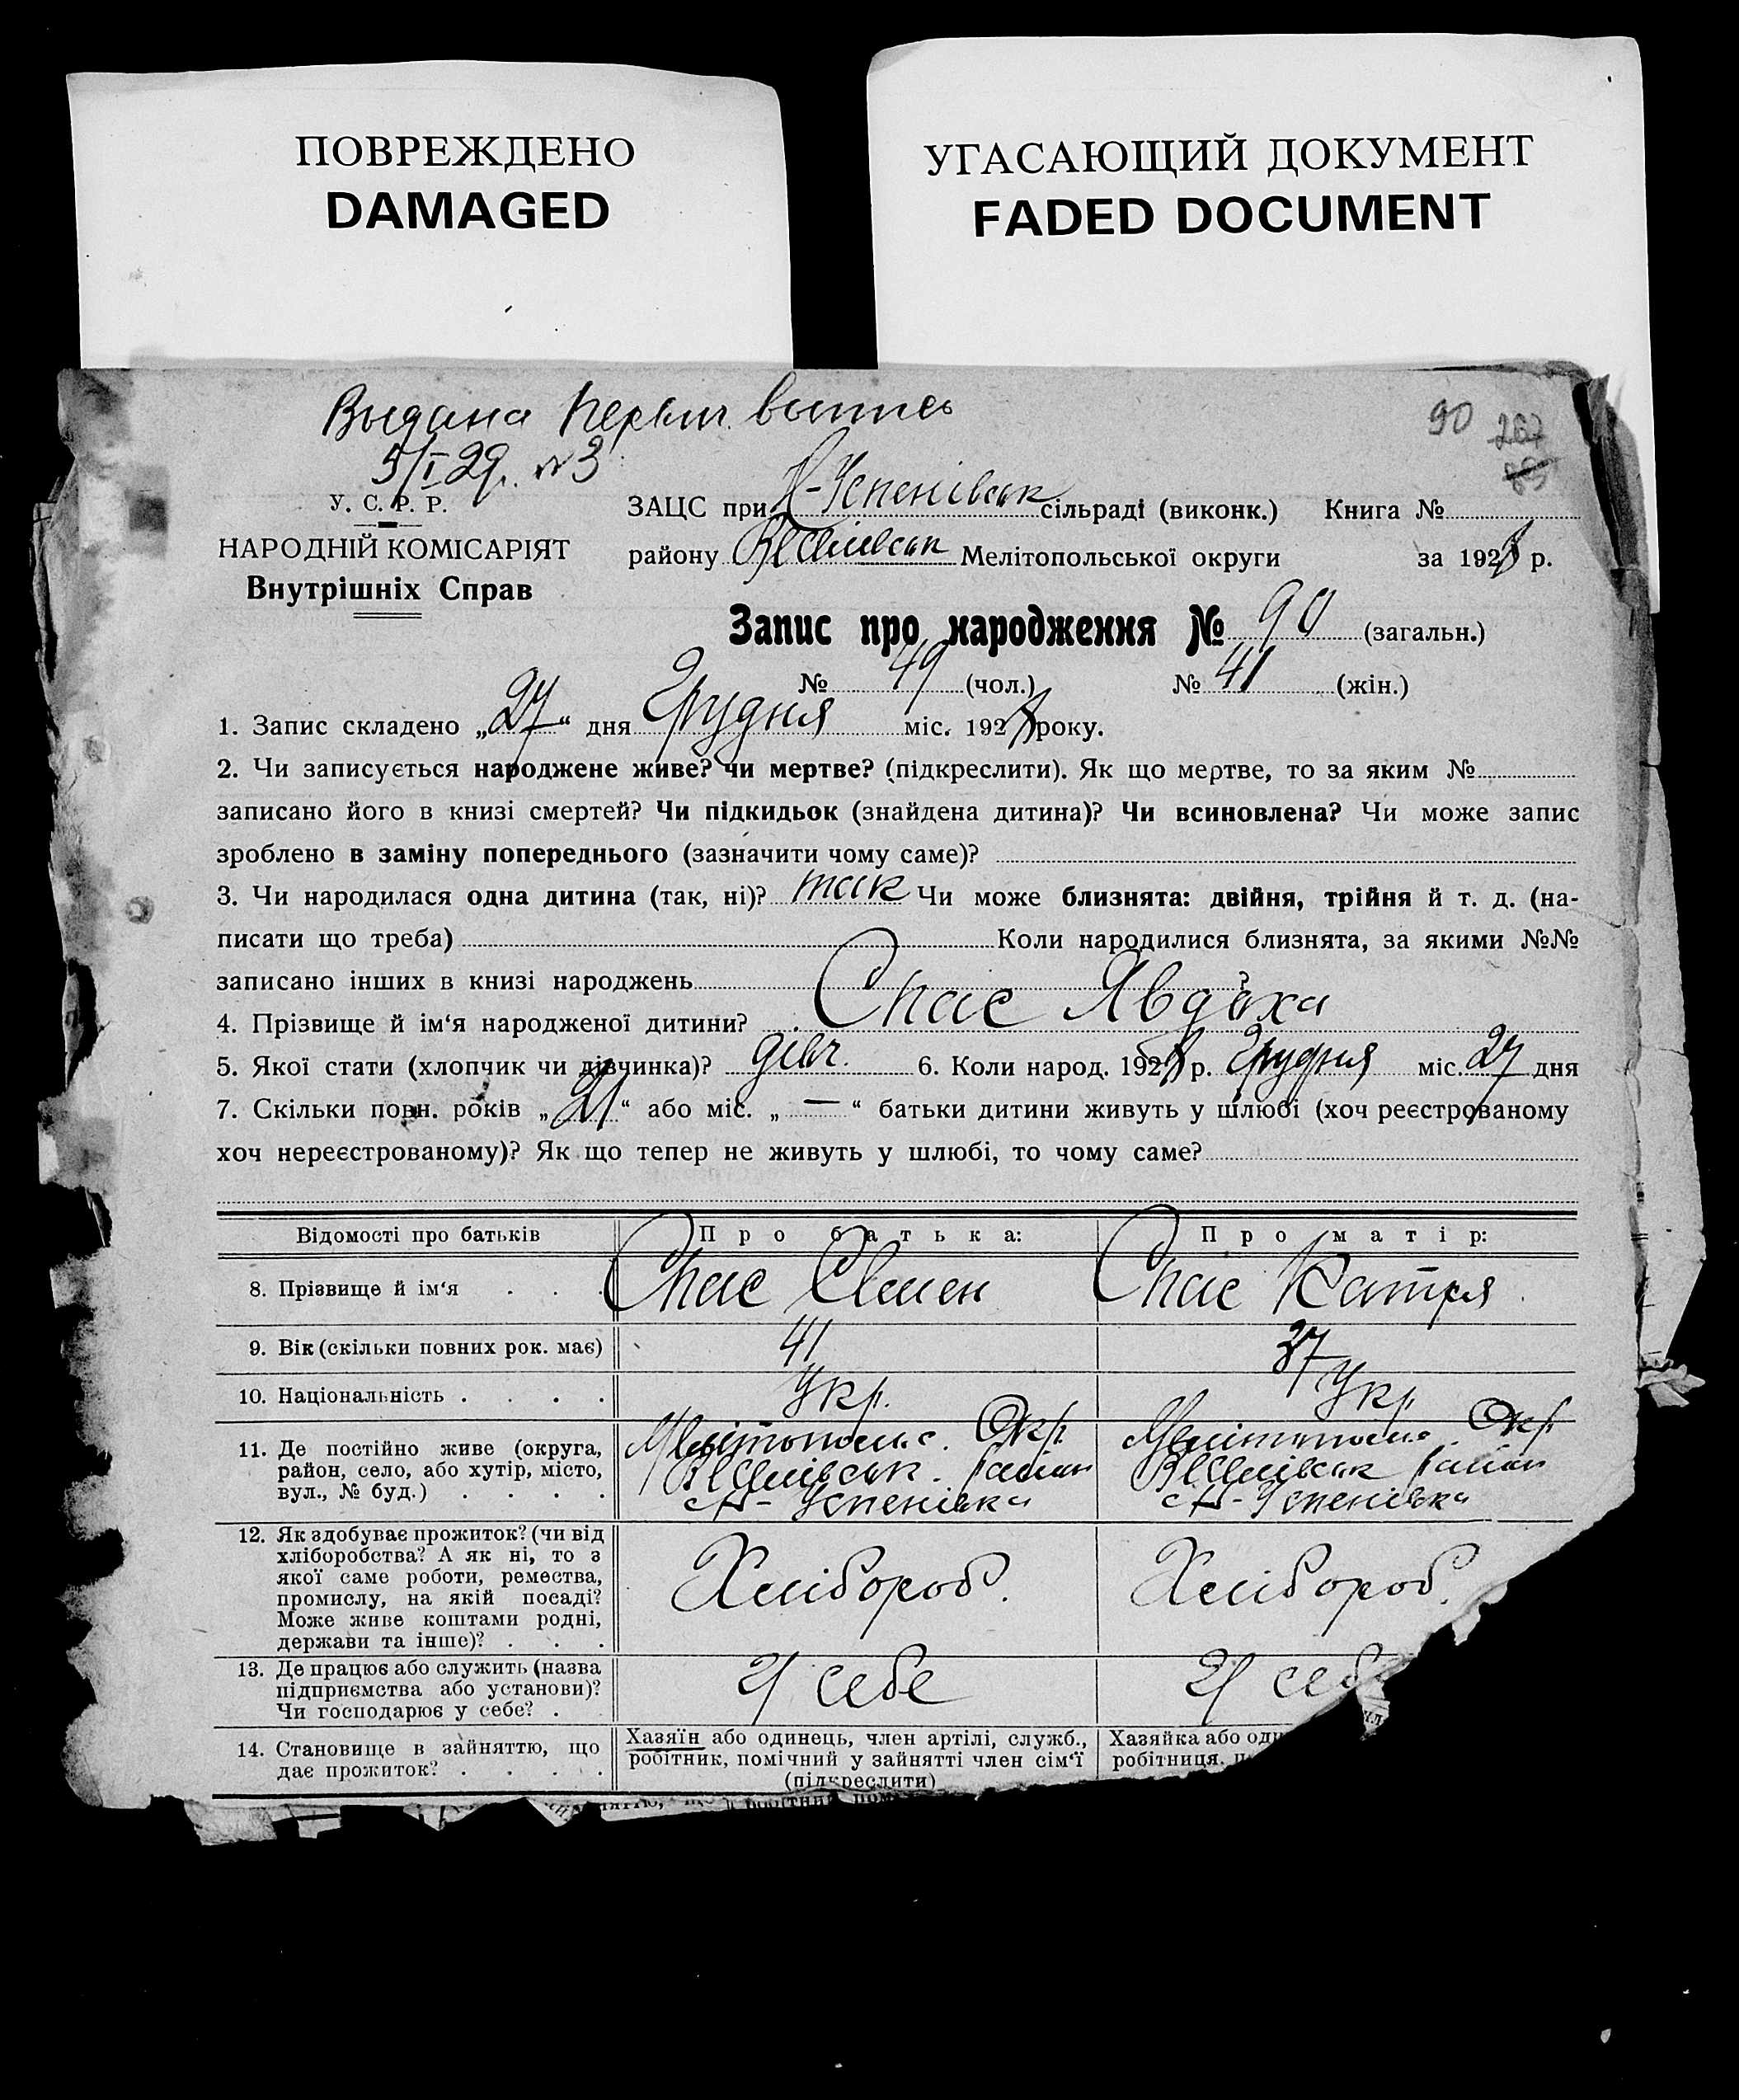 ПОВРЕЖДЕНО
DAMAGED
УГАСАЮЩИЙ ДОКУМЕНТ
FADED DOCUMENT
Выдана
5/I 29. №3
90 267
У. С. Р. Р.
НАРОДНІЙ КОМІСАРІЯТ
Внутрішніх Справ
ЗАЦС при Н-Успенівськ сільраді (виконк.) Книга №
району Мелітопольської округи за 1928 р.
Запис про народження № 90 (загальн.)
№ 49 (чол.) № 41 (жін.)
1. Запис складено „27“ дня Грудня міс. 1928 року.
2. Чи записується народжене живе? чи мертве? (підкреслити). Як що мертве, то за яким №
записано його в книзі смертей? Чи підкидьок (знайдена дитина)? Чи всиновлена? Чи може запис
зроблено в заміну попереднього (зазначити чому саме)?
3. Чи народилася одна дитина (так, ні)? так Чи може близнята: двійня, трійня й т. д. (на-
писати що треба) Коли народилися близнята, за якими №№
записано інших в книзі народжень ?
4. Прізвище й ім‘я народженої дитини? Спас Явдоха
5. Якої стати (хлопчик чи дівчинка)? дівч. 6. Коли народ. 1928 р. Грудня міс. 27 дня
7. Скільки повн. років „21“ або міс. „—“ батьки дитини живуть у шлюбі (хоч реєстрованому
хоч нереєстрованому)? Як що тепер не живуть у шлюбі, то чому саме?
Відомості про батьків Про батька: Про матір:
8. Прізвище й ім‘я . . . Спас Семен Спас Катря
9. Вік (скільки повних рок. має) 41 37
10. Національність . . . . Укр. Укр
11. Де постійно живе (округа,
район, село, або хутір, місто,
вул., № буд.) . . . .
Мелітопольс. Окр.
район
с Н-Успенівка
Мелітопольс. Окр
район
с Н-Успенівка
12. Як здобуває прожиток? (чи від
хліборобства? А як ні, то з
якої саме роботи, ремества,
промислу, на якій посаді?
Може живе коштами родні,
держави та інше)? . . .
Хлібороб. Хлібороб.
13. Де працює або служить (назва
підприємства або установи)?
Чи господарює у себе? .
У себе У себ
14. Становище в зайняттю, що
дає прожиток? . . . .
Хазяїн або одинець, член артілі, служб.,
робітник, помічний у зайнятті член сім‘ї
(підкреслити)
Хазяйка або оди
робітниця, п